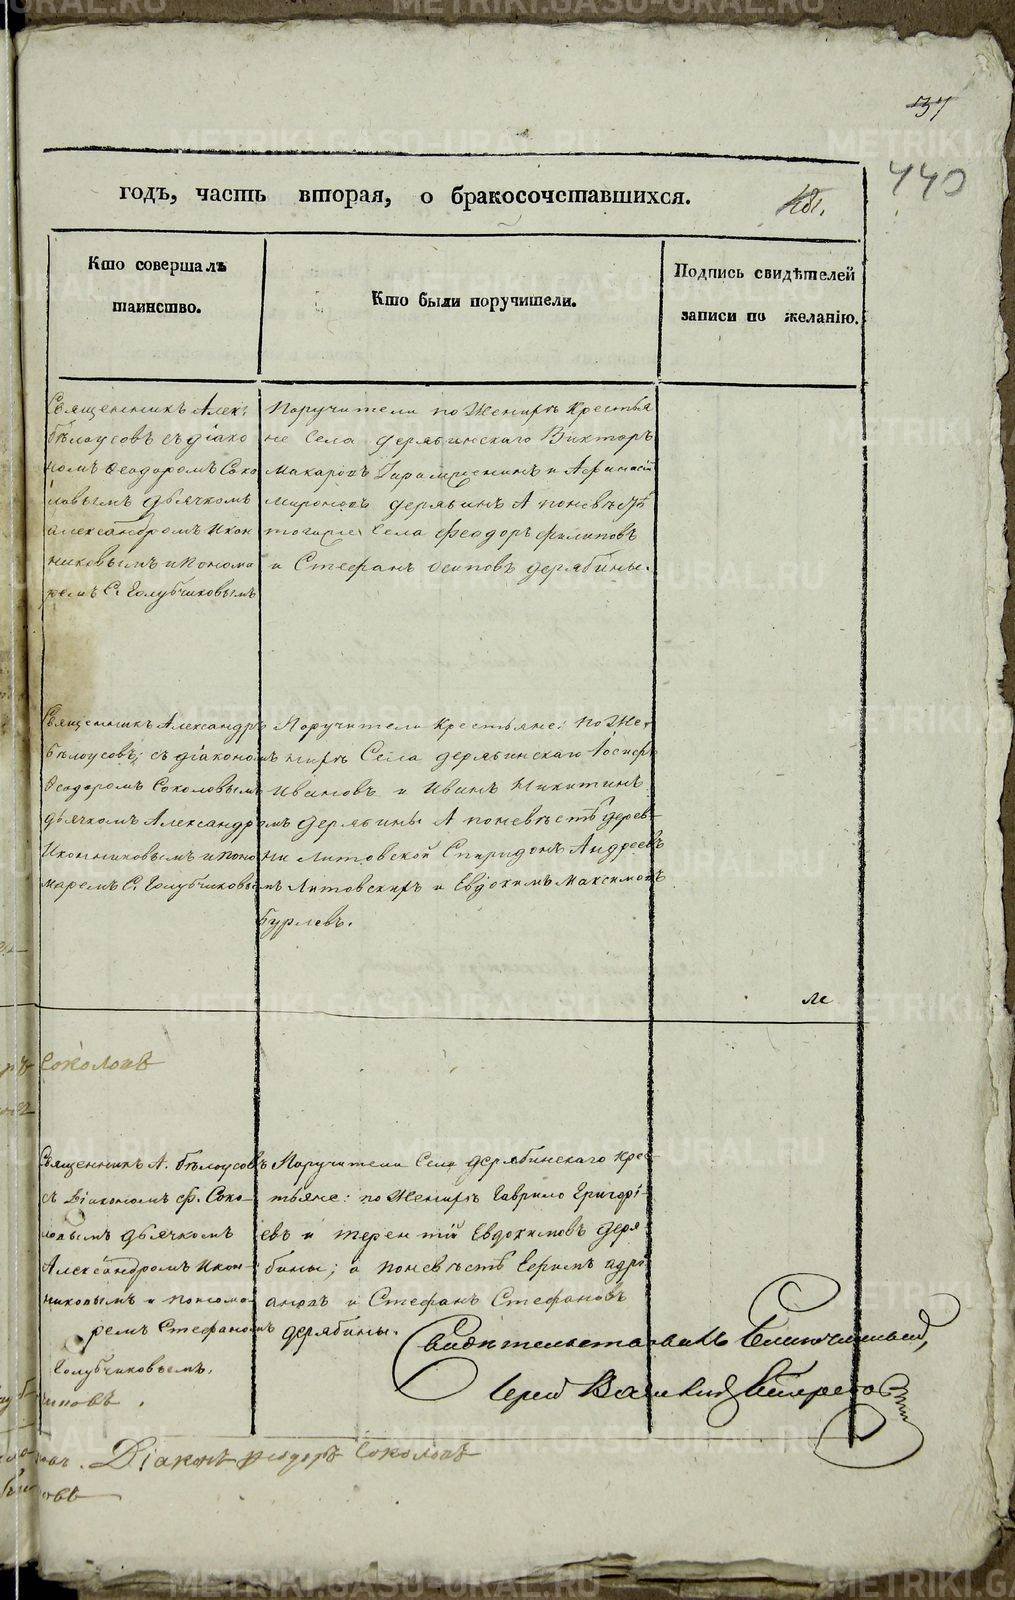 137
440
годъ, часть вторая, о бракосочетавшихся.
Кто совершалъ таинство.
Кто были поручители.
Подпись свидѣтелей записи по желанію.
Священникъ Алек:
бѣлоусовъ съ діако
номъ Ѳеодоромъ Соко
ловымъ дьячкомъ
александромъ Икон
никовымъ и Понома
ремъ С. Голубчиковымъ
Поручители по Женихѣ Крестья
не Села дерябинскаго Викторъ
Макаровъ и Афанасій
Мироновъ дерябинъ А поневѣстѣ
тогоже Села Феодоръ филиповъ
и Стефанъ Осиповъ дерябины.
Священникъ Александръ
Бѣлоусовъ, съ діакономъ
Ѳеодоромъ Соколовымъ
дьячкомъ Александромъ
Иконниковымъ и поно
маремъ С. Голубчиковымъ
Поручители Крестьяне: по Же-
нихѣ Села дерябинскаго
Ивановъ и Иванъ Никитинъ
дерябины А поневѣстѣ дерев-
ни Литовской Спиридонъ Андреевъ
Литовскихъ и Евдокимъ Максимовъ
бурлевъ.
Соколовъ
Священникъ А. бѣлоусовъ
съ Діакономъ Ф. Соко-
ловымъ дьячкомъ
Александромъ Икон-
никовымъ и понома-
ремъ Стефаномъ
Голубчиковымъ.
Поручители Села дерябинскаго Крес-
тьяне: по Женихѣ Гаврило Григорі-
евъ и терентій Евдокимовъ деря
бины; а поневѣстѣ адрі
ановъ и Стефанъ Стефановъ
дерябины.
Свидѣтельствовалъ Благочинный,
Іерей Василій
Діаконъ феодоръ Соколовъ
METRIKI.GASO-URAL.RU